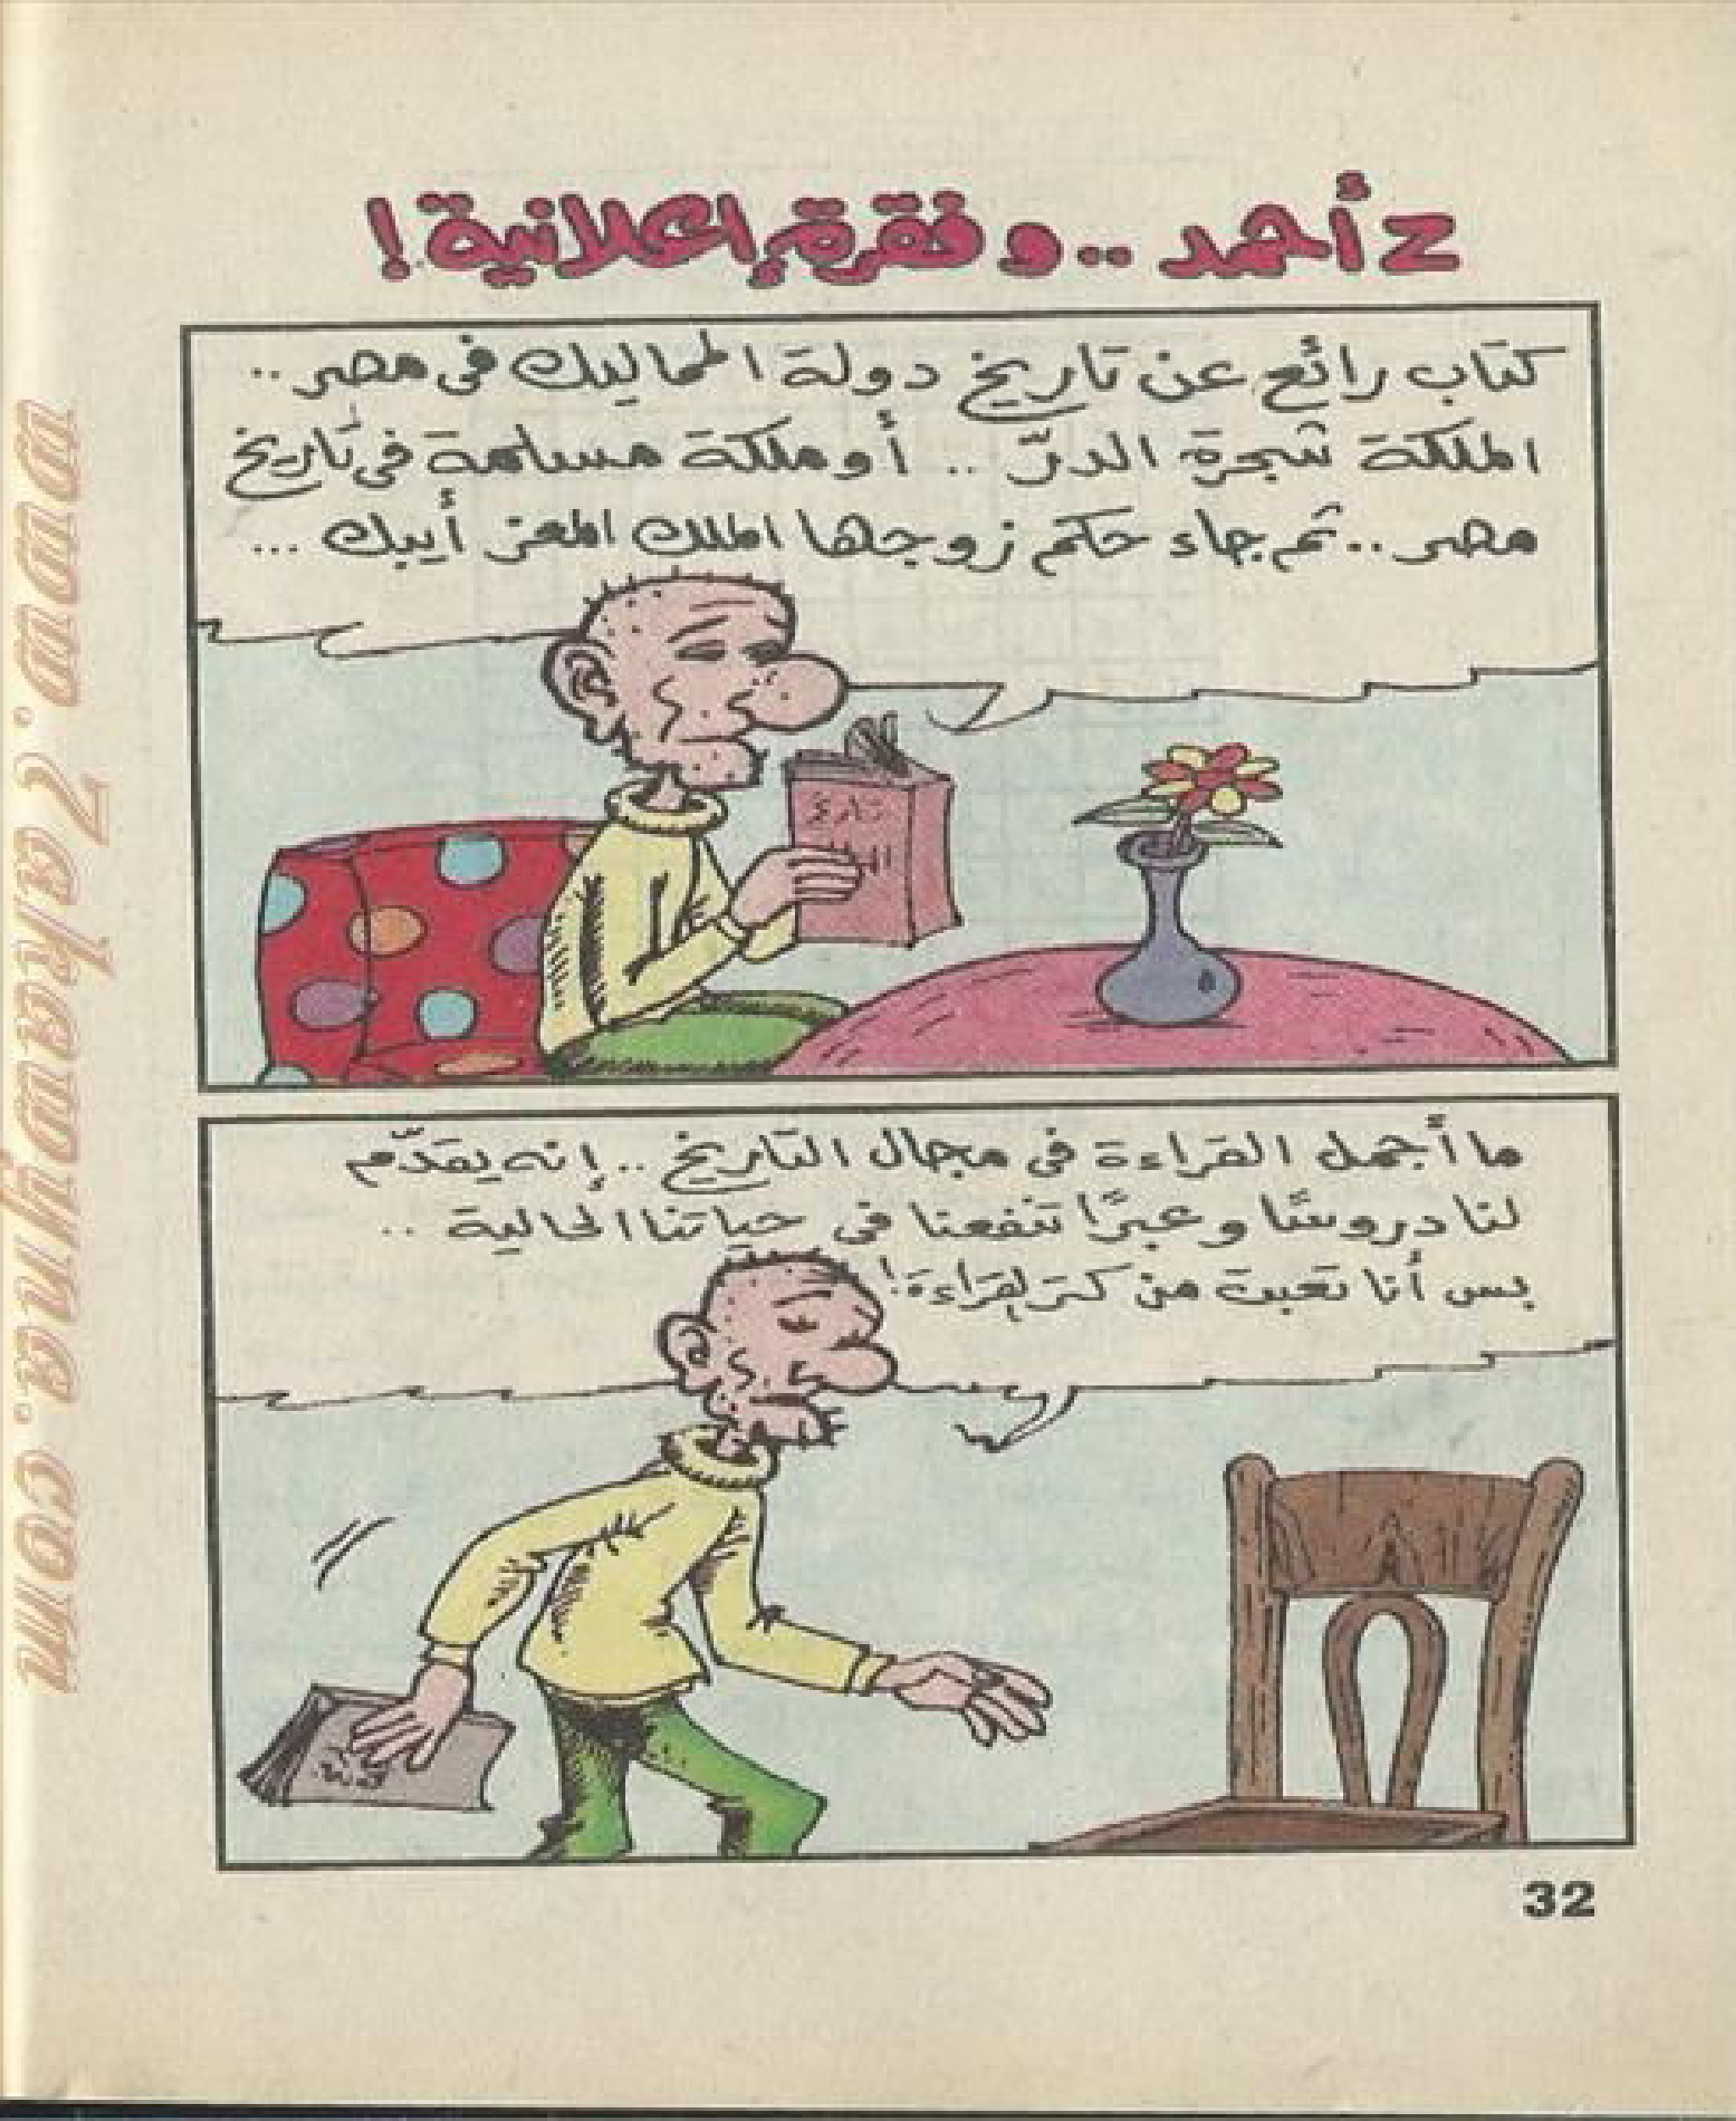 ح أحمد .. و فقرة إعلانية !
كتاب رائع عن تاريخ دولة المماليك فى مصر ..
الملكة شجرة الدرّ .. أو ملكة مسلمة فى تاريخ
مصر .. ثم جاء حكم زوجها الملك المعز أيبك ...
تاريخ
ما أجمل القراءة فى مجال التاريخ .. إنه يقدّم
لنا دروسًا وعبرًا تنفعنا فى حياتنا الحالية ..
بس أنا تعبت من كتر لقراءة !
32
www.7akawyna.com